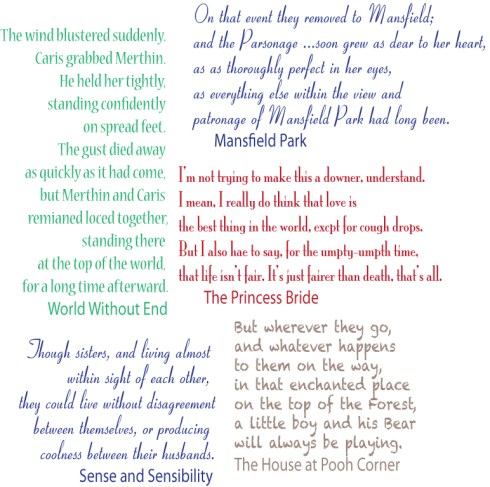 The wind blustered suddenly.
Caris grabbed Merthin.
He held her tightly,
standing confidently
on spread feet.
The gust died away
as quickly as it had come,
but Merthin and Caris
remianed loced together,
standing there
at the top of the world,
for a long time afterward.
World Without End
On that event they removed to Mansfield;
and the Parsonage ...soon grew as dear to her heart,
as as thoroughly perfect in her eyes,
as everything else within the view and
patronage of Mansfield Park had long been.
Mansfield Park
I'm not trying to make this a downer, understand.
I mean, I really do think that love is
the best thing in the world, excpt for cough drops.
But I also hae to say, for the umpty-umpth time,
that life isn't fair. It's just fairer than death, that's all.
The Princess Bride
Though sisters, and living almost
within sight of each other,
they could live without disagreement
between themselves, or producing
coolness between their husbands.
Sense and Sensibility
But wherever they go,
and whatever happens
to them on the way,
in that enchanted place
on the top of the Forest,
a little boy and his Bear
will always be playing.
The House at Pooh Corner